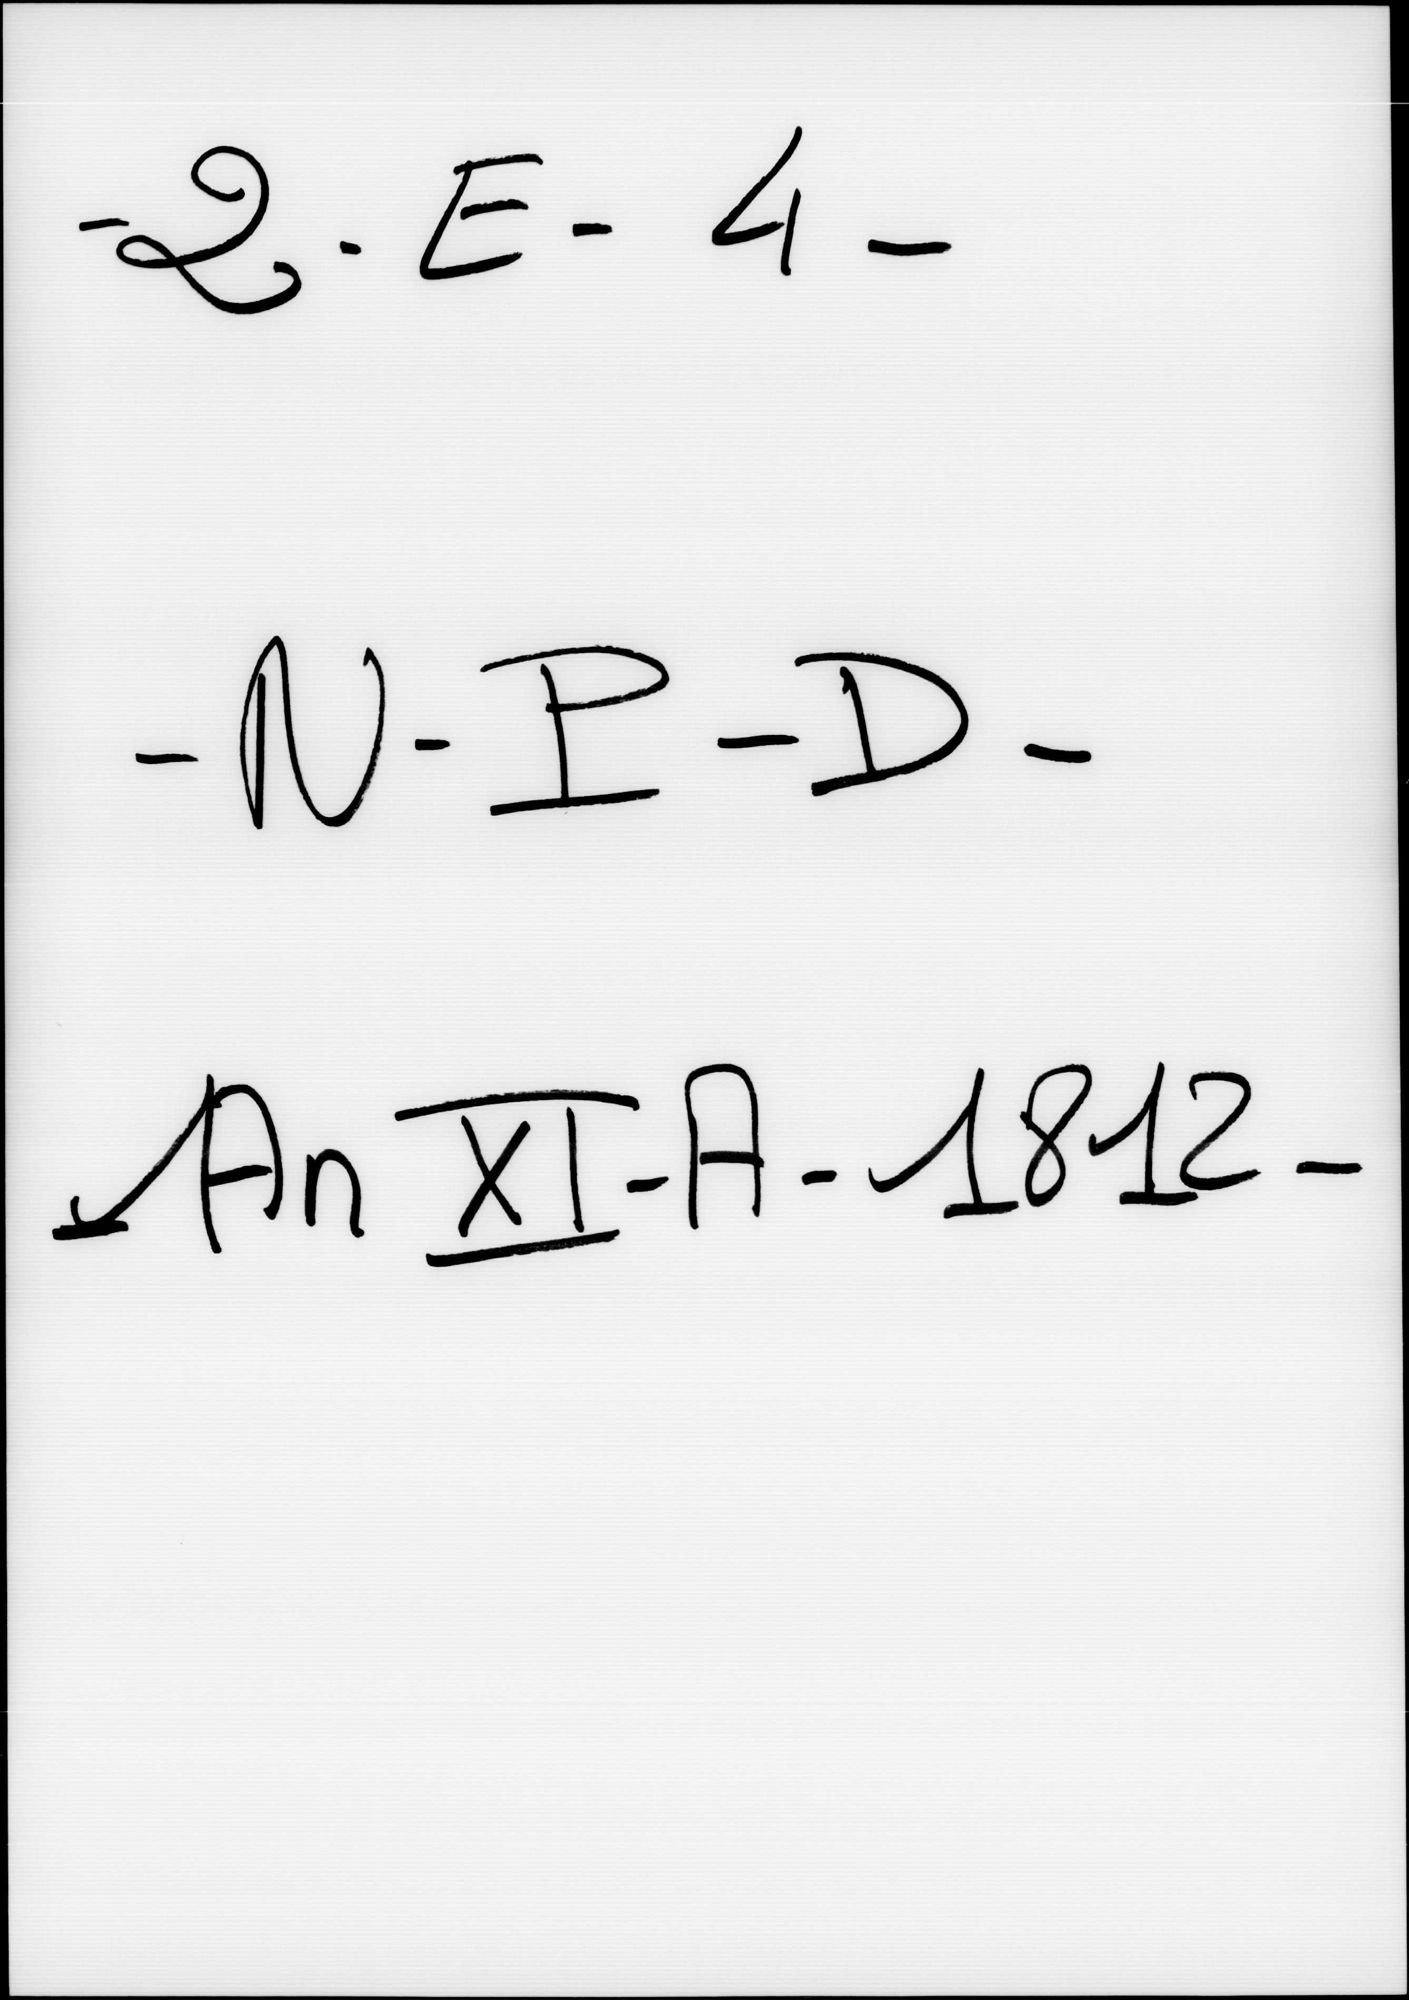 - 2 . E - 4 -
- N - P - D -
- An XI - A - 1812 -